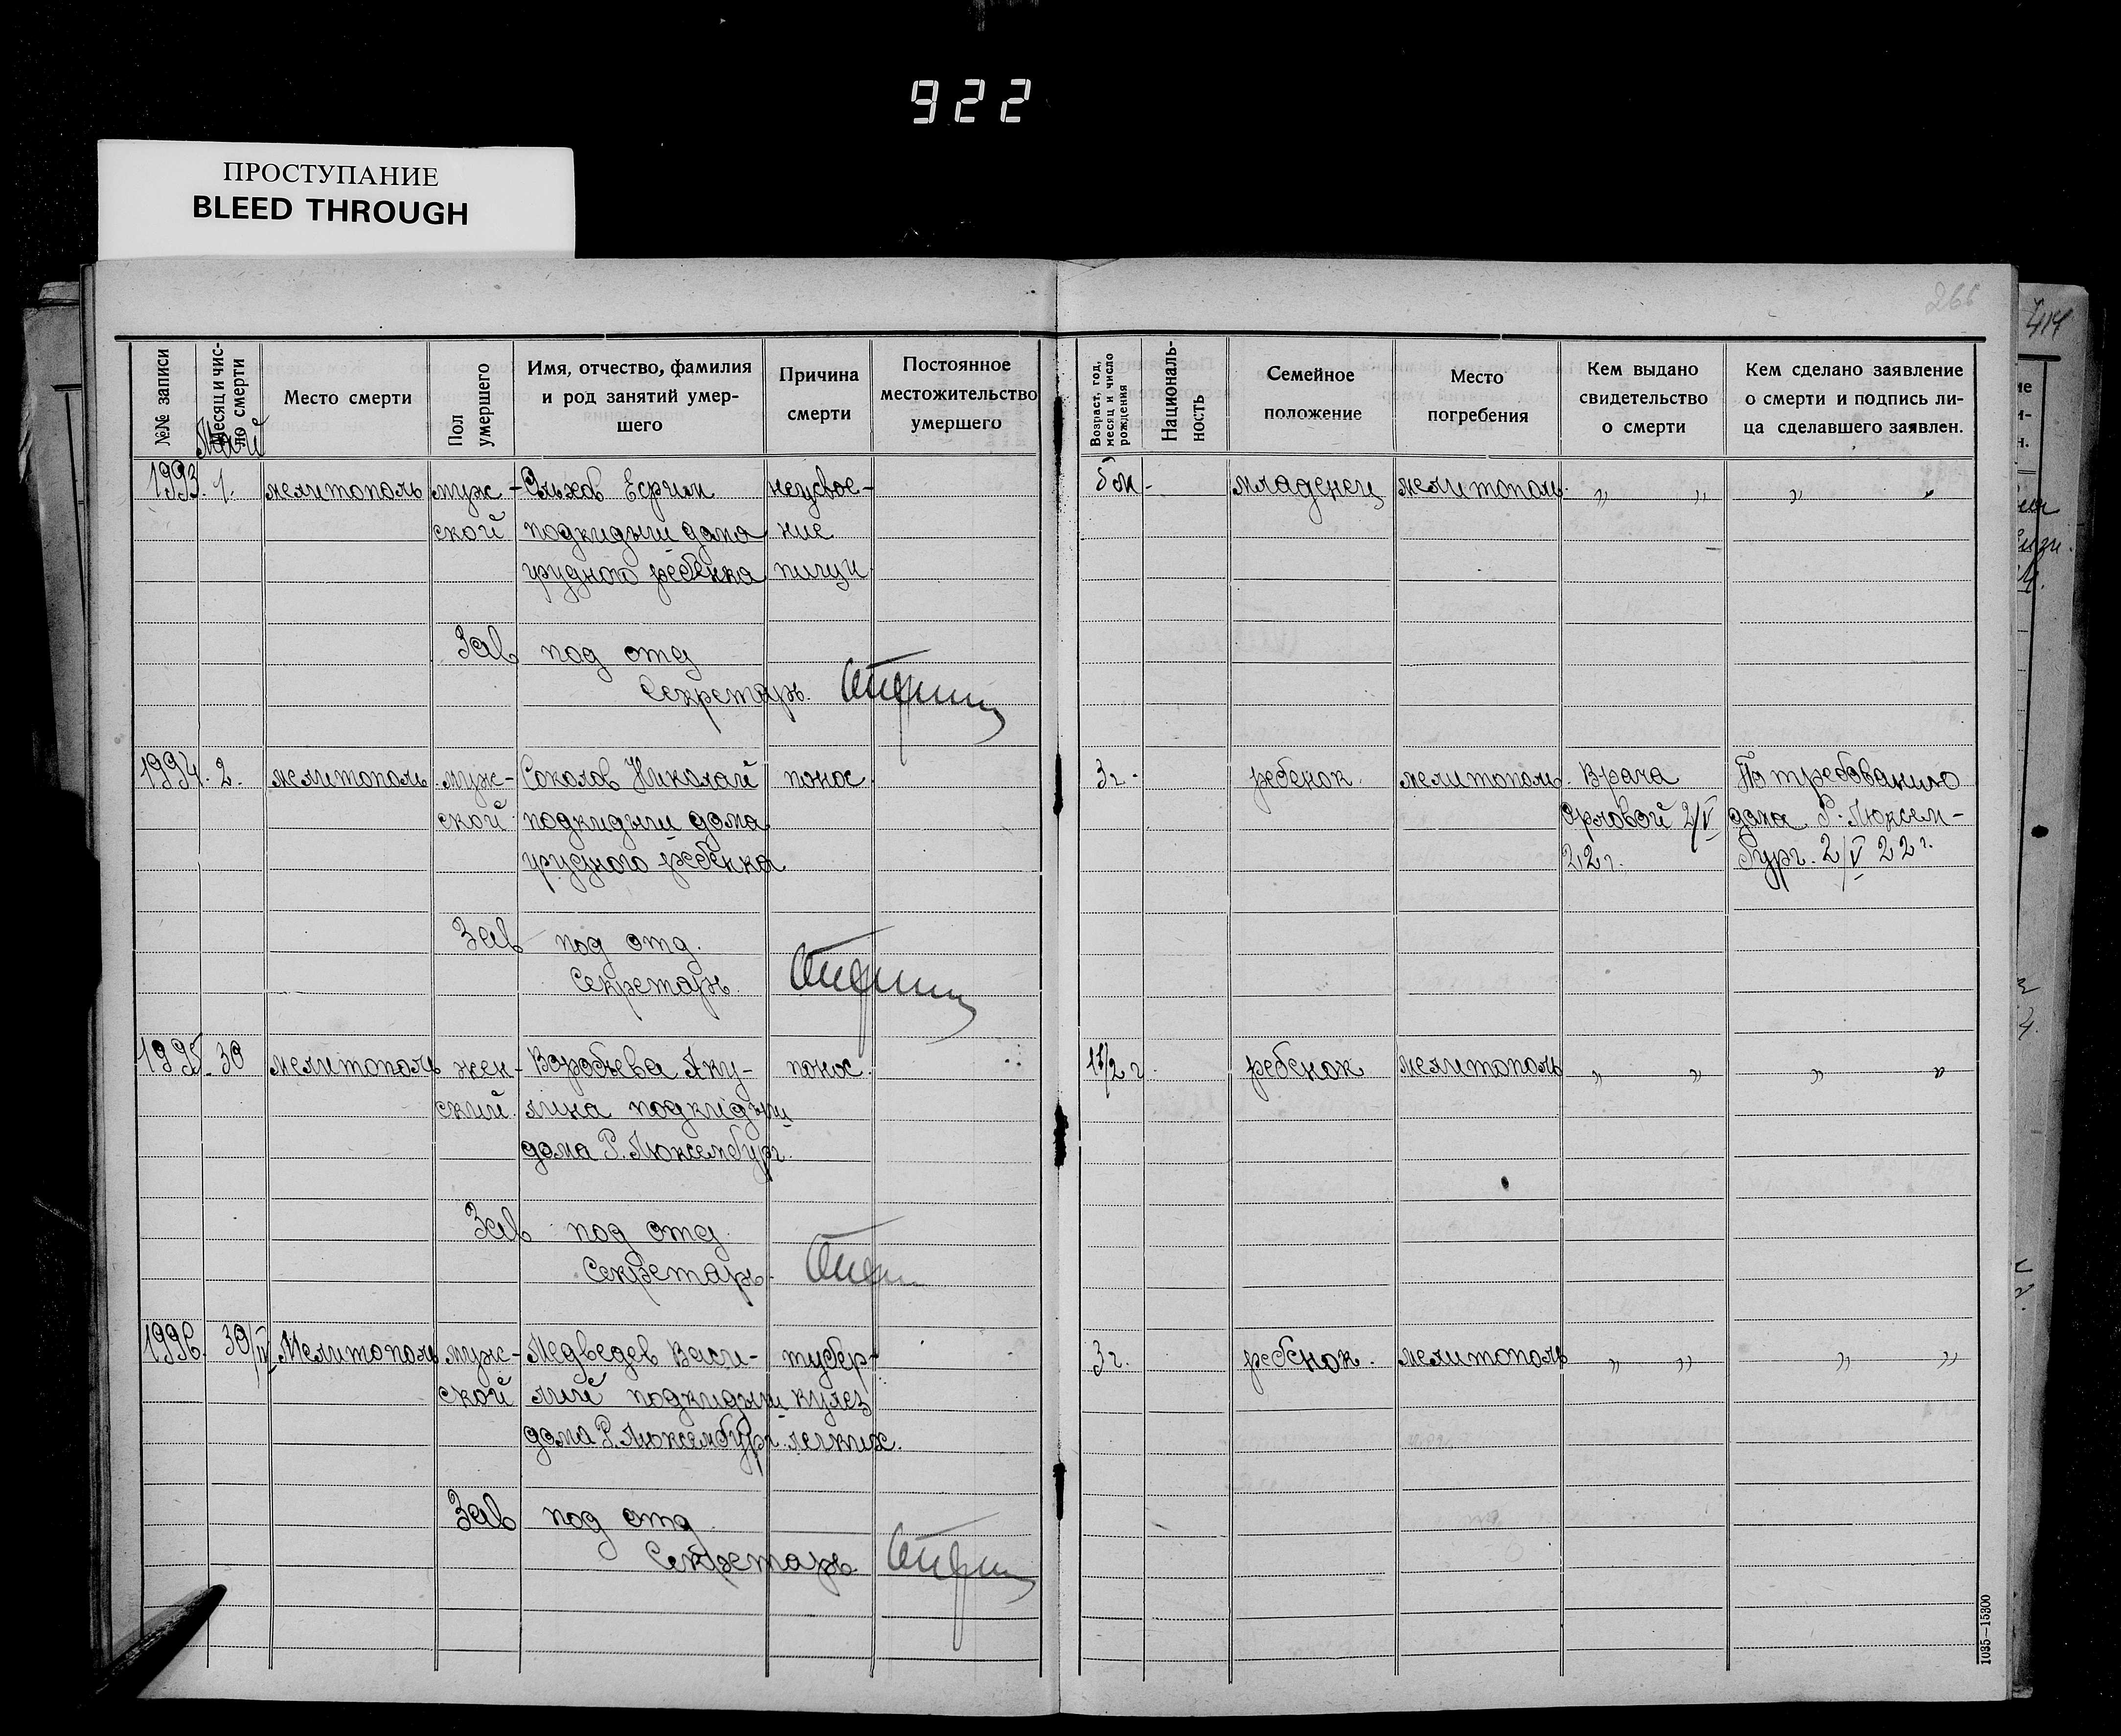 922
ПРОСТУПАНИЕ
BLEED THROUGH
266
414
№№ записи
Месяц и чис-
ло смерти
Май
Место смерти
Пол
умершего
Имя, отчество, фамилия
и род занятий умер-
шего
Причина
смерти
Постоянное
местожительство
умершего
Возраст, год,
месяц и число
рождения
Националь-
ность
Семейное
положение
Место
погребения
Кем выдано
свидетельство
о смерти
Кем сделано заявление
о смерти и подпись ли-
ца сделавшего заявлен.
1993. 1. мелитополь муж- Ефрим неусвое- младенец мелитополь „ „ „ „
ской подкидыш дома ние
грудного ребенка пищи
Зав под отд
Секретарь.
1994. 2. мелитополь муж- Соколов Николай понос. 3 г. ребенок. мелитополь. Врача По требованию
ской подкидыш дома Орловой 2/V дома Р. Люксем-
грудного ребенка 22 г. бург. 2/V 22 г.
Зав под отд.
Секретарь.
1995. 30 мелитополь жен- Воробьева Аку- понос. 1 1/2 г. ребенок мелитополь „ „ „ „
ский. лина подкидыш
дома Р. Люксембург.
Зав под отд.
Секретарь.
1996. 30/IV Мелитополь муж- Медведев Васи- тубер- 3 г. ребенок. мелитополь „ „ „ „
ской лий подкидыш кулез
дома Р. Люксембург. легких.
Зав под отд
Секретарь
1035—15300